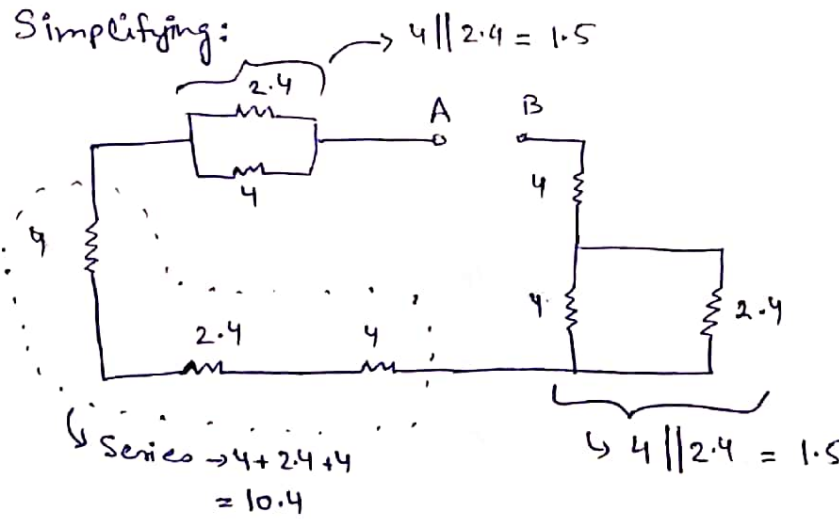 Simplifying:
→ 4 || 2.4 = 1.5
2.4
A
B
4
4
4
4
2.4
2.4
4
↳ Series → 4 + 2.4 + 4
= 10.4
↳ 4 || 2.4 = 1.5